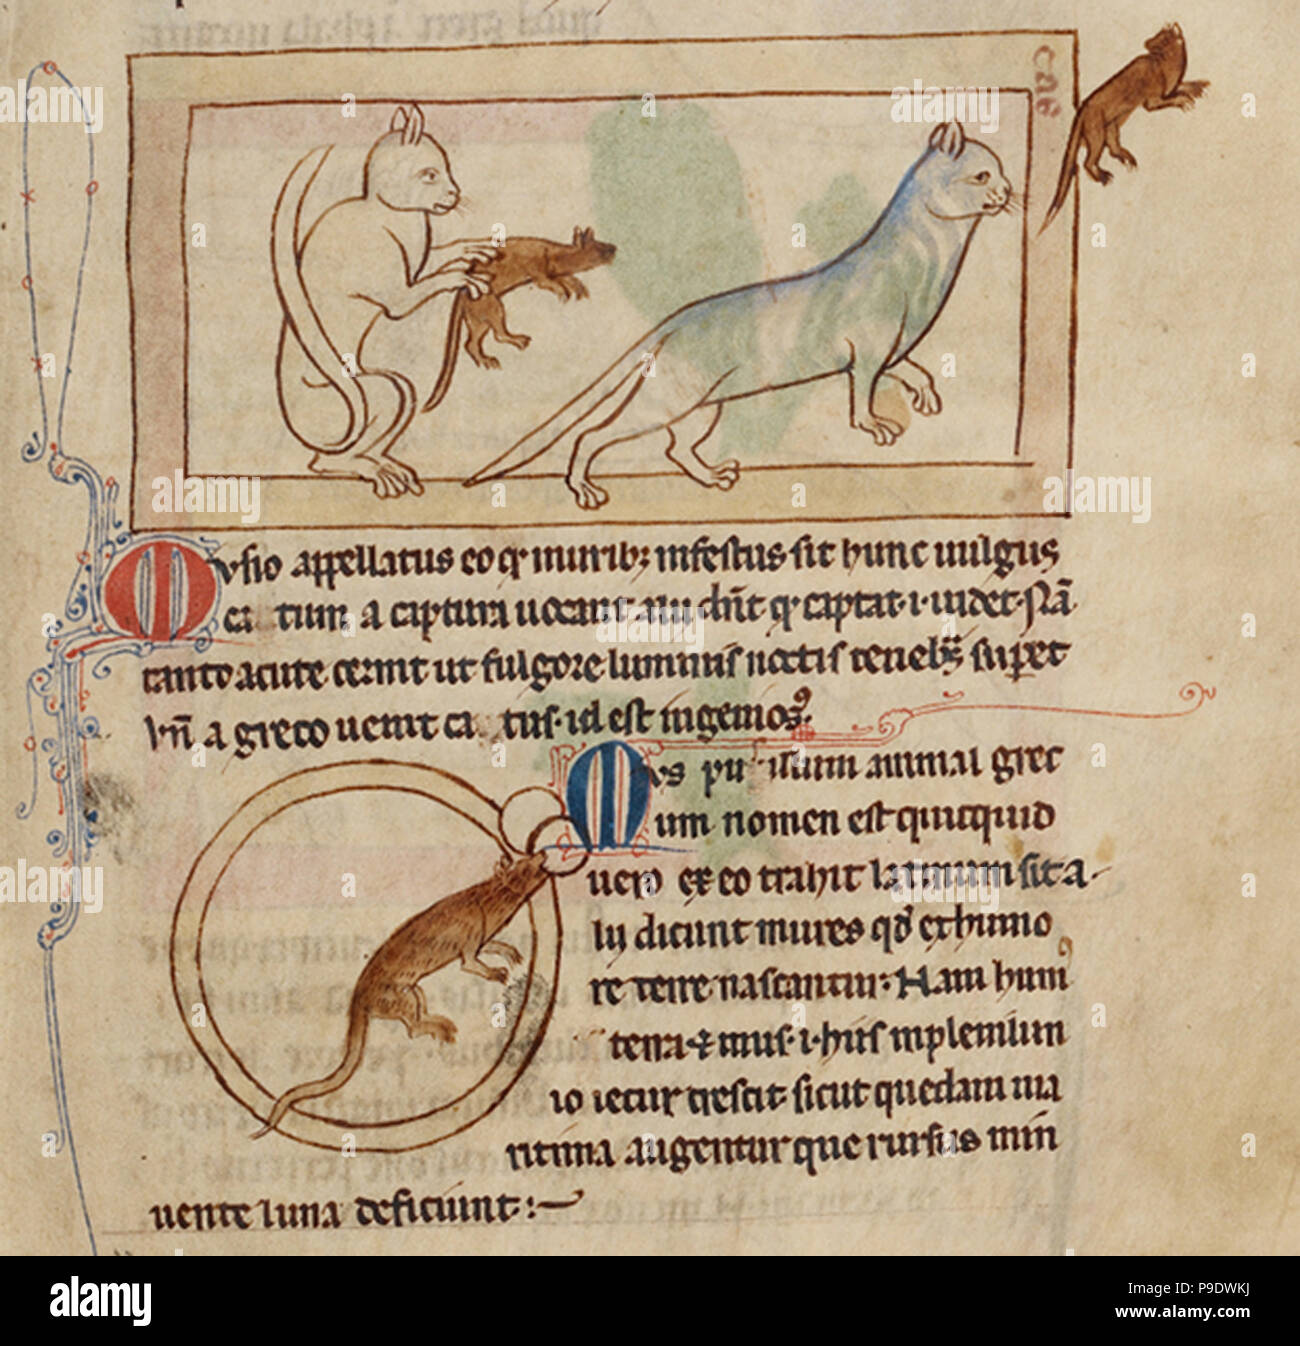 cat
Musio appellatus eo qͥ murib; infestus sit hunc uulgus
catum a captura uocant alii dn̄t qͥ captat·i·uidet·Nā
tanto acute cernit ut fulgore luminis noctis tenebͣs supet
Vn̄ a greco uenit ca tus·id est ingeniosꝰ·
Mus pusillum animal grec
um nomen est quicquid
uero ex eo trahit latinum sit a·
lij dicunt mures qđ ex humo
re terre nascantur· Nam humꝰ
terra ⁊ mus·i·hiis inplenilun
io iecur crescit sicut quedam ma
ritima augentur que rursus min
uente luna deficiunt:~
alamy
Image ID: P9DWKJ
www.alamy.com